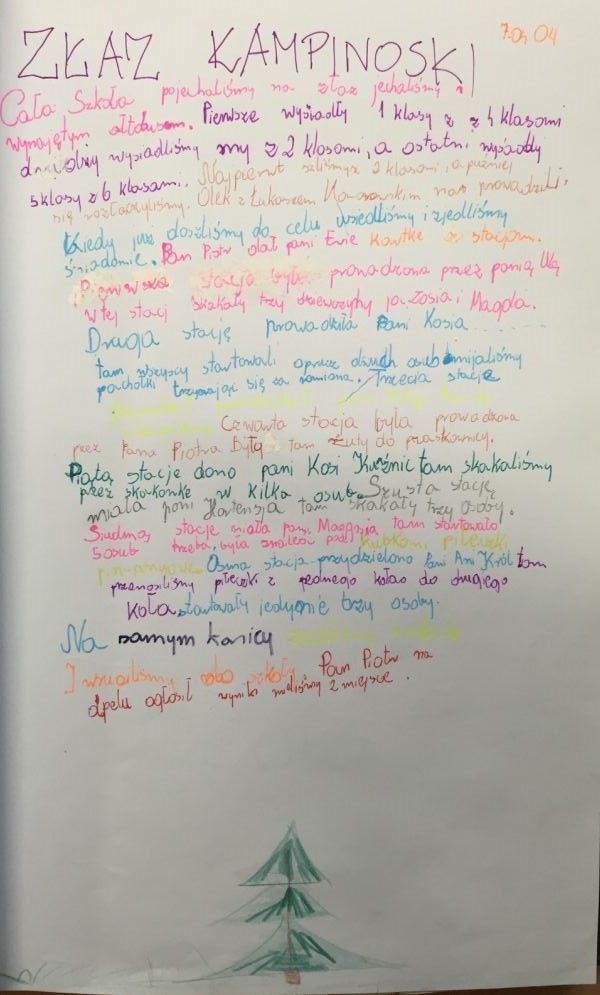 7.04 04
ZŁAZ KAMPINOSKI
Cała Szkoła pojechaliśmy na złaz jechaliśmy
wynajętym ałtobusem. Pierwsze wysiadły 1 klasy z z 4 klasami
drudzy wysiadliśmy my z 2 klasami, a ostatni wysiadły
5 klasy z 6 klasami. Najpierwt szliśmy z 2 klasami, a puźniej
się rozłączyliśmy. Olek z Łukaszem nas prowadzili.
Kiedy już doszliśmy do celu usiedliśmy i zjedliśmy
śniadanie. Pan Piotr dał pani Ewie kartke ze stacjami.
Pierwsza stacja była prowadzona przez panią Ulą
w tej stacj skakały trzy dziewczyny ja Zosia i Magda.
Druga stację prowadziła Pani Kasia
tam wszyscy startowali oprócz dwuch osub omijaliśmy
pachołki trzymając się za ramiona. Trzecia stacje
Czwarta stacja była prowadzona
przez Pana Piotra Były tam żuty do piaskownicy.
Piątą stacje dano pani Kasi Kuźnic tam skakaliśmy
przez skakanke w kilka osub. Szusta stację
miała pani Hortensja tam skakały trzy osoby.
Siudmą stacje miała pani Magosja tam startowało
5 osub trzeba było znaleść pod kubkami piłeczki
pin-pongowe. Osma stacja przydzielono Pani Ani Król tam
przenosiliśmy piłeczki z jednego koła do drugiego
koła startowały jedynie trzy osoby.
Na samym koncy
I wruciliśmy do szkoły. Pan Piotr na
apelu ogłosił wyniki mieliśmy 2 miejsce.